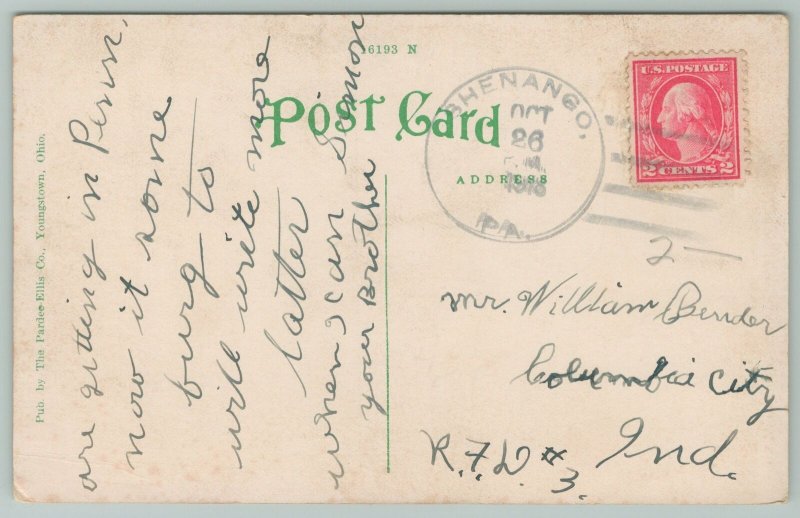 6193 N
Post Card
ADDRESS
Pub. by The Pardee-Ellis Co., Youngstown, Ohio.
SHENANGO,
OCT
26
1918
PA.
U.S. POSTAGE
2 CENTS 2
are getting in Penn,
now it some
burg to
will write more
latter
when I can Simon
your Brother
2 —
Mr. William Bender
Columbia City
Ind.
R.F.D # 3.